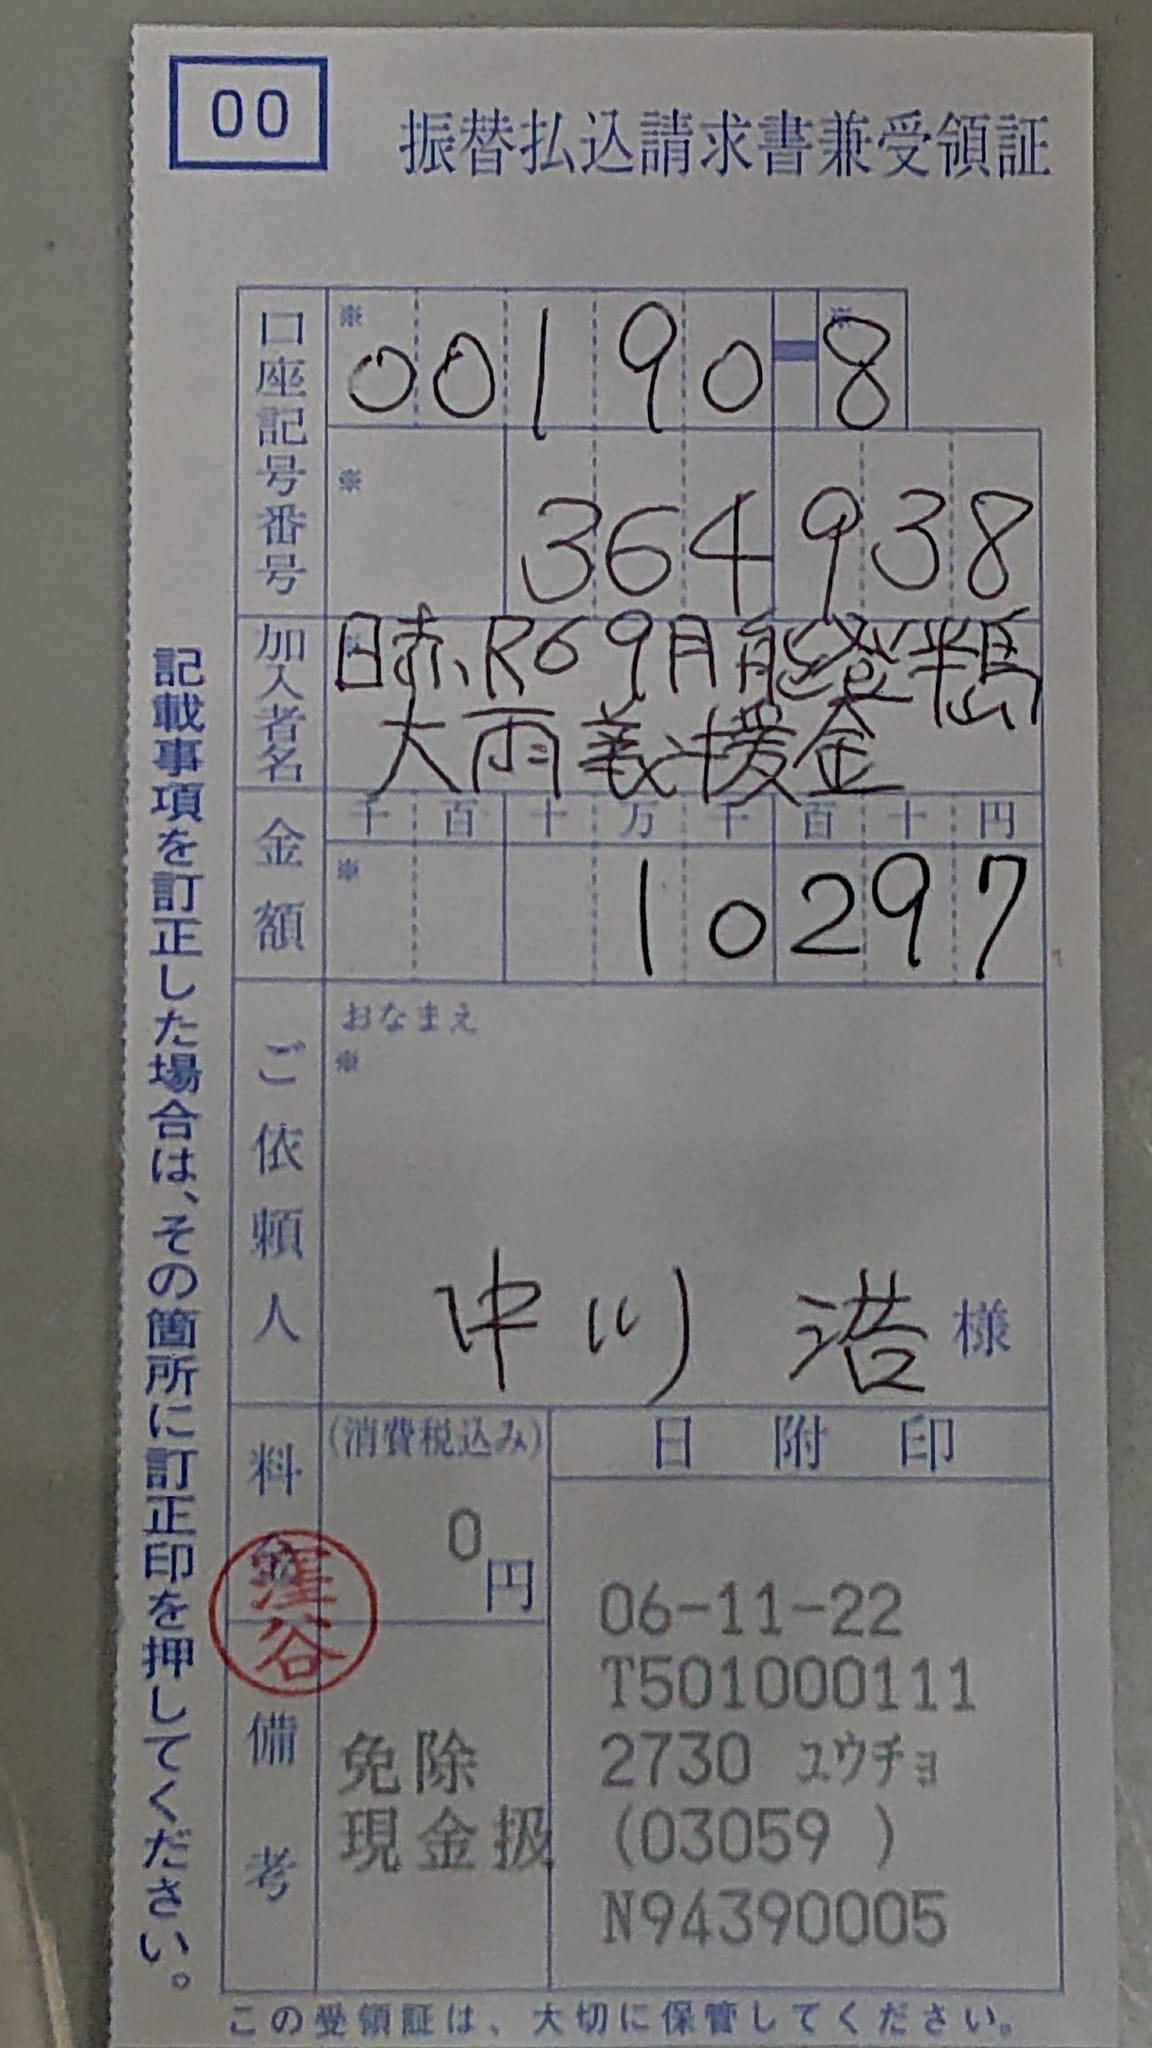 00
振替払込請求書兼受領証
口座記号番号
※ ※
00190-8
※
364938
加入者名
日赤R69月能登半島
大雨義援金
金額
千百十万千百十円
※
10297
ご依頼人
おなまえ
※
中川 浩 様
料
(消費税込み)
0
円
日附印
窪谷
備考
免除
現金扱
06-11-22
T501000111
2730 ユウチョ
(03059 )
N94390005
記載事項を訂正した場合は、その箇所に訂正印を押してください。
この受領証は、大切に保管してください。